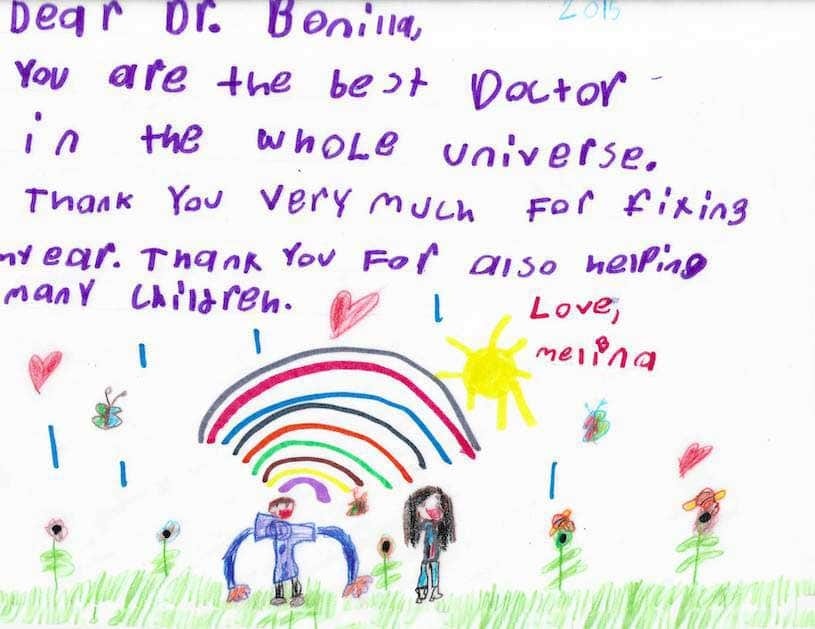 2015
Dear Dr. Bonilla,
You are the best Doctor
in the whole universe.
Thank You very much for fixing
my ear. Thank You For also helping
many children.
Love,
melina